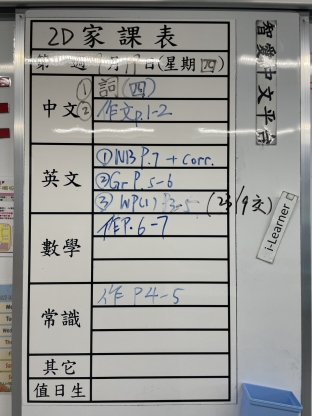 2D 家課表
第 週 月 日(星期四)
中文
① 詞(四)
② 作文p.1-2
英文
① NB P.7 + corr.
② Gr P.5-6
③ WP(1) P.3-5 (23/9交)
數學
作P.6-7
常識
作 P4-5
其它
值日生
智愛中文平台
i-Learner